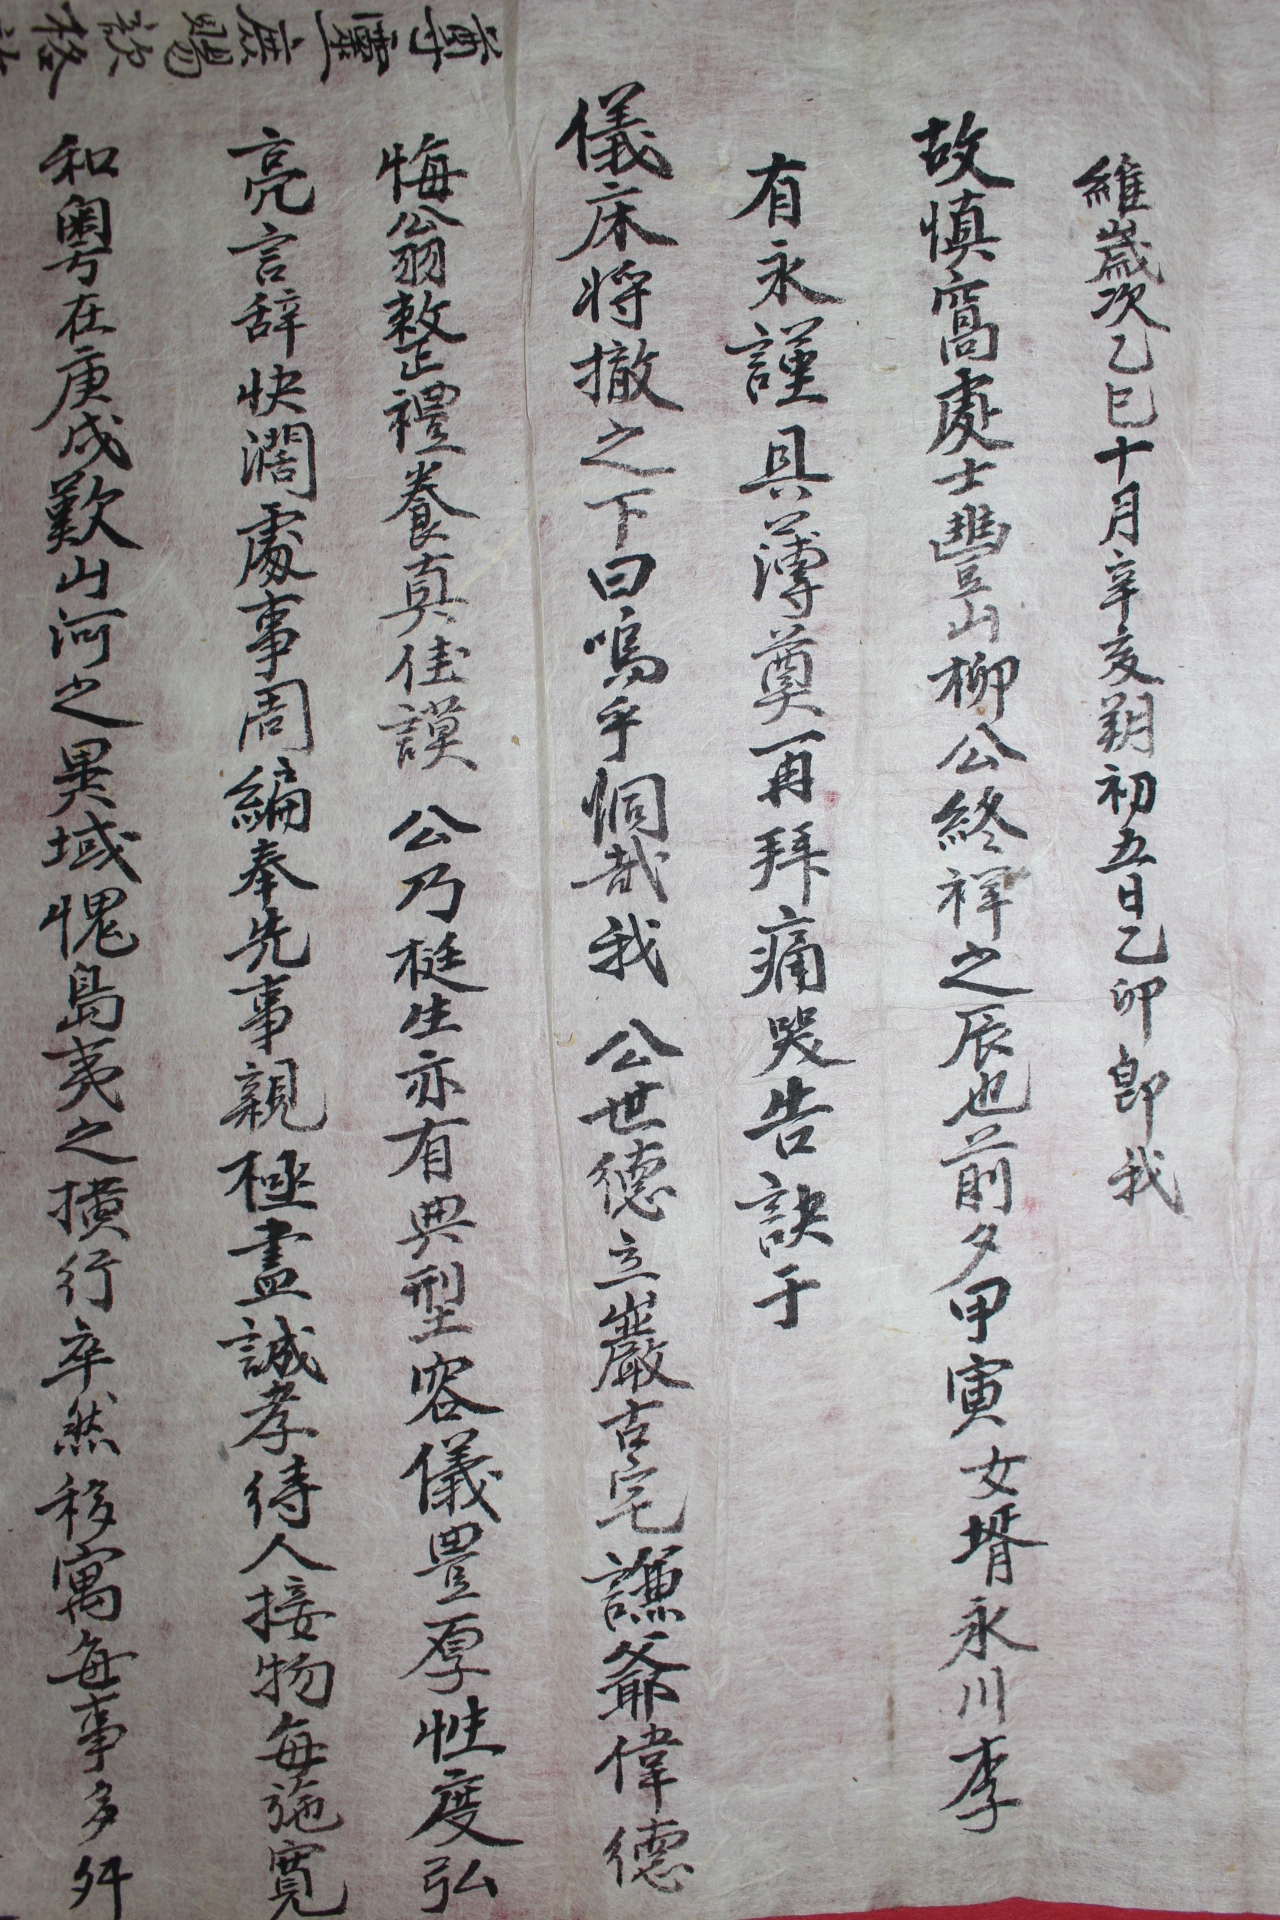 維歲次乙巳十月辛亥朔初五日乙卯卽我
故慎窩處士豐山柳公終祥之辰也前夕甲寅女壻永川李
有永謹具薄奠再拜痛哭告訣于
儀床將撤之下曰嗚乎恫哉我 公世德立巖古宅謙爺偉德
悔翁敕正禮養真佳謨 公乃梃生亦有典型容儀豊厚性度弘
亮言辞快濶處事周編奉先事親極盡誠孝待人接物每施寬
和粤在庚戌歎山河之異域愧島夷之橫行卒然移寓每事多舛
尊靈庶賜歆格